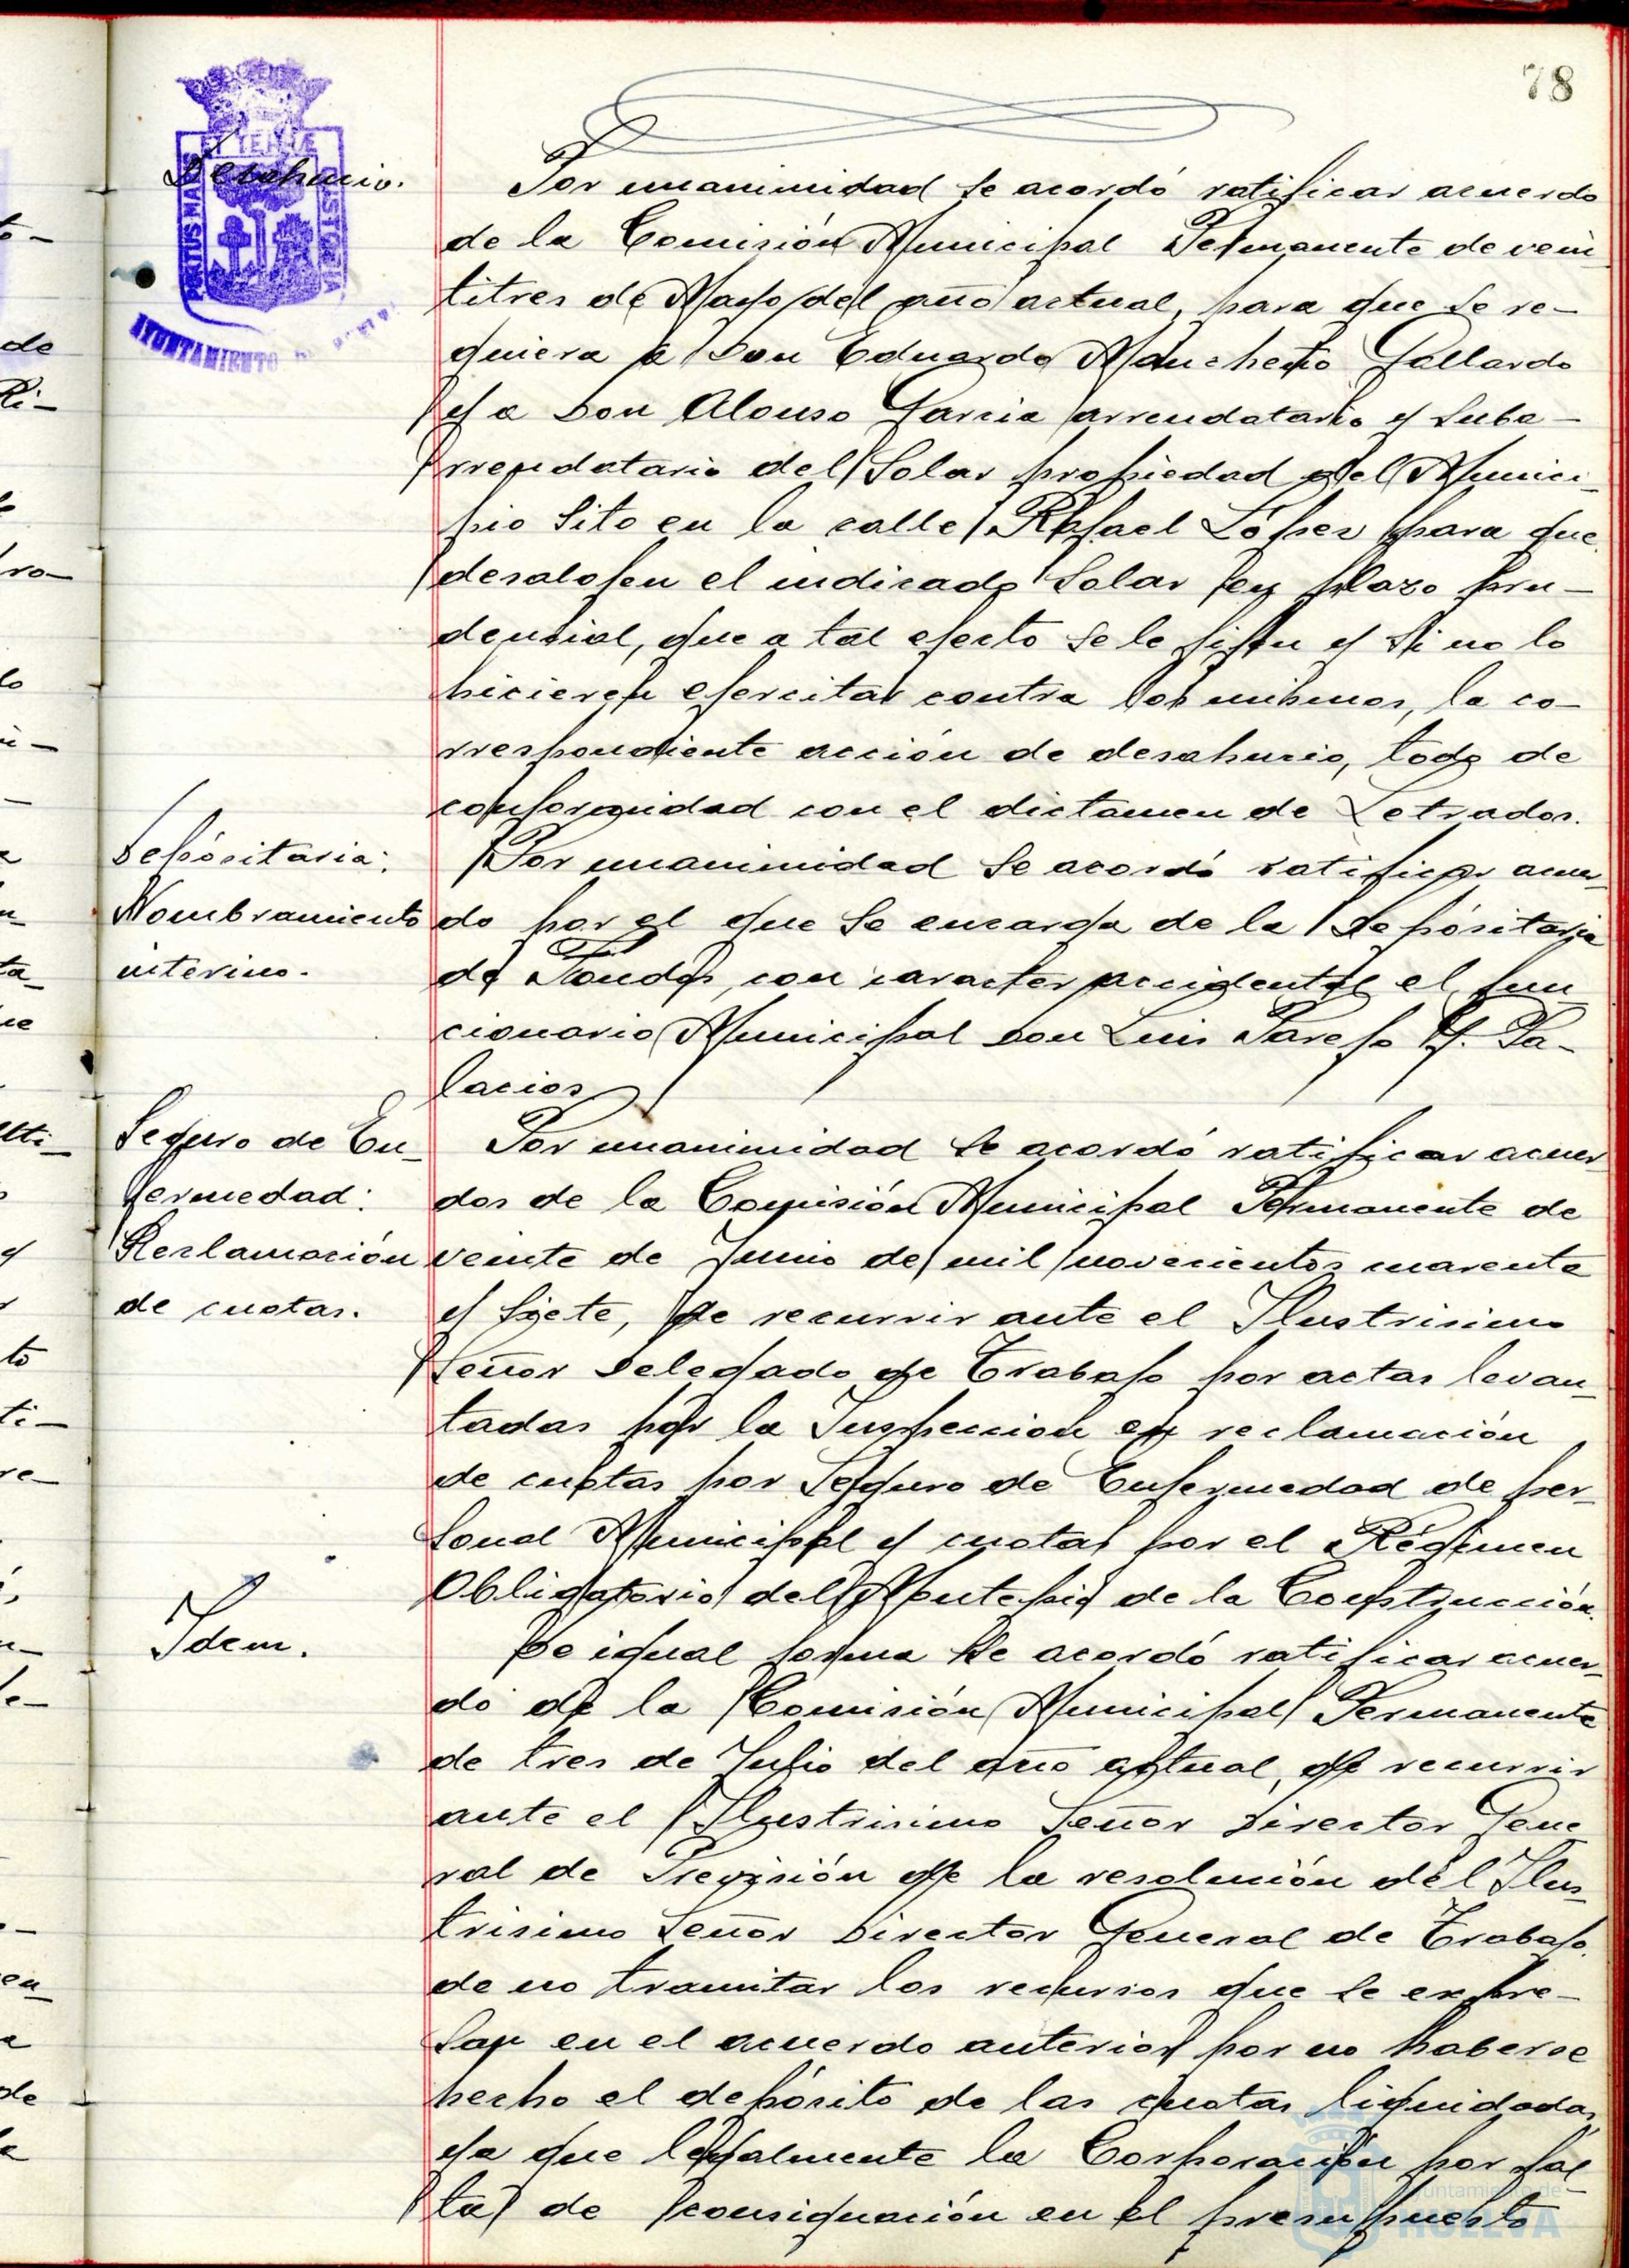 78
Desahucio.
Por unanimidad se acordó ratificar acuerdo
de la Comisión Municipal Permanente de vein
titres de Mayo del año actual, para que se re-
quiera a Don Eduardo Mancheño Gallardo
y a Don Alonso Garcia arrendatario y suba-
rrendatario del Solar propiedad del Munici-
pio sito en la calle Rafael López para que
desalojen el indicado Solar en plazo pru-
dencial, que a tal efecto se le fijen y si no lo
hicieren ejercitar contra los mismos, la co-
rrespondiente acción de desahucio, todo de
conformidad con el dictamen de Letrados.
Depósitaria:
Nombramiento
interino.
Por unanimidad se acordó ratificar acuer-
do por el que se encarga de la Depósitaria
de Fondos, con caracter accidental el fun
cionario Municipal Don Luis Parejo Pa-
lacios
Seguro de En-
fermedad:
Reclamación
de cuotas.
Por unanimidad se acordó ratificar acuer
dos de la Comisión Municipal Permanente de
veinte de Junio de mil novecientos cuarenta
y siete, de recurrir ante el Ilustrisimo
Señor Delegado de Trabajo por actas levan-
tadas por la Inspección en reclamación
de cuotas por Seguro de Enfermedad de per-
sonal Municipal y cuotas por el Régimen
Obligatorio del Montepio de la Construcción.
Idem.
De igual forma se acordó ratificar acuer-
do de la Comisión Municipal Permanente
de tres de Julio del año actual, de recurrir
ante el Ilustrisimo Señor Director Gene
ral de Previsión de la resolución del Ilus-
trisimo Señor Director General de Trabajo,
de no tramitar los recursos que se expre-
san en el acuerdo anterior por no haberse
hecho el depósito de las cuotas liquidadas,
ya que legalmente la Corporación por fal-
ta de consignación en el presupuesto
PORTUS MARIS
ET TERRE
CUSTODIA
AYUNTAMIENTO
Ayuntamiento de
HUELVA